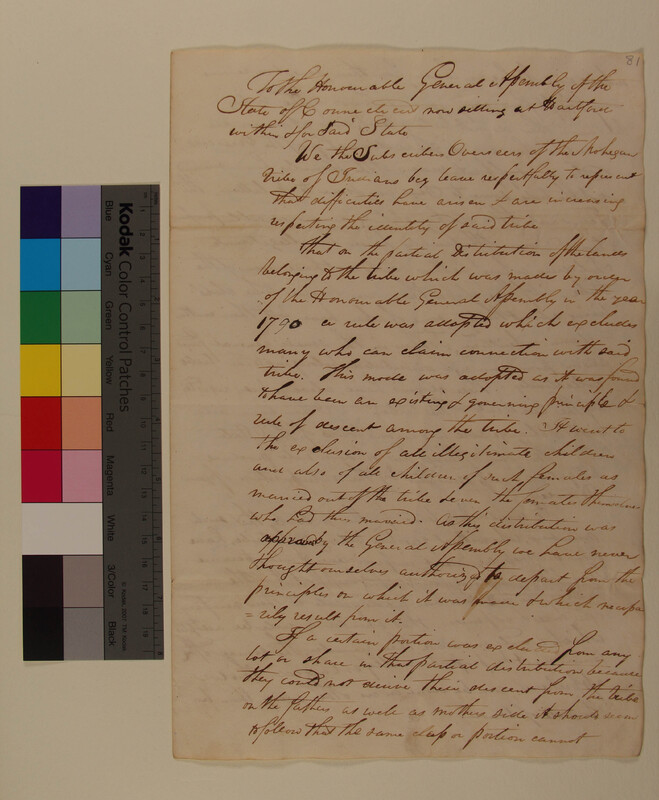 81
To the Honourable General Assembly of the
State of Connecticut now sitting at Hartford
within & for said State
We the Subscribers Overseers of the Mohegan
tribe of Indians beg leave respectfully to represent
that difficulties have arisen & are increasing
respecting the identity of said tribe
That on the partial Distribution of the Lands
belonging to the tribe which was made by order
of the Honourable General Assembly in the year
1790 a rule was adopted which excludes
many who can claim connection with said
tribe. This mode was adopted as it was found
to have been an existing & governing principle &
rule of descent among the tribe. It went to
the exclusion of all illegitimate children
and also of all children of such females as
married out of the tribe & even the females themselves
who had thus married. As this distribution was
by the General Assembly we have never
thought ourselves authorized to depart from the
principles on which it was made & which necessa
=rily result from it.
If a certain portion was excluded from any
lot or share in that partial distribution because
they could not derive their descent from the tribe
on the fathers as well as mothers side it should seem
to follow that the same class or portion cannot
Kodak Color Control Patches
Blue
Cyan
Green
Yellow
Red
Magenta
White
3/Color
Black